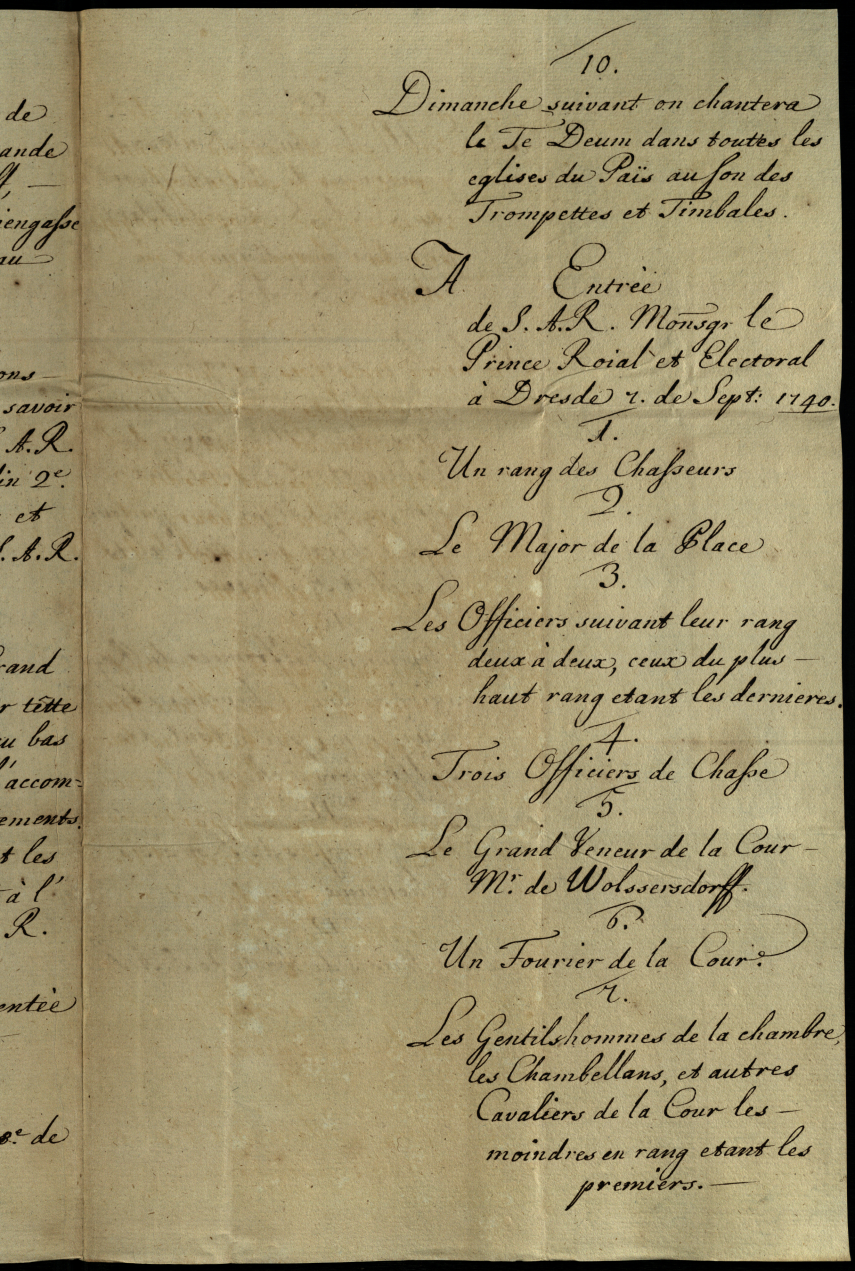 de
ande
ff, —
iengasse
au
ons —
savoir
A. R.
in 2e.
et
S. A. R.
rand
r tëtte
u bas
l'accom=
ements.
t les
à l'
R.
entèe
8e. de
10.
Dimanche suivant on chantera
le Te Deum dans toutes les
eglises du Païs au son des
Trompettes et Timbales.
A Entrèe
de S. A. R. Monsgr le
Prince Roial et Electoral
à Dresde 7. de Sept: 1740.
1.
Un rang des Chasseurs
2.
Le Major de la Place
3.
Les Officiers suivant leur rang
deux à deux, ceux du plus —
haut rang etant les dernieres.
4.
Trois Officiers de Chasse
5.
Le Grand Veneur de la Cour —
Mr. de Wolssersdorff.
6.
Un Fourier de la Cour.
7.
Les Gentilshommes de la chambre,
les Chambellans, et autres
Cavaliers de la Cour les —
moindres en rang etant les
premiers. —